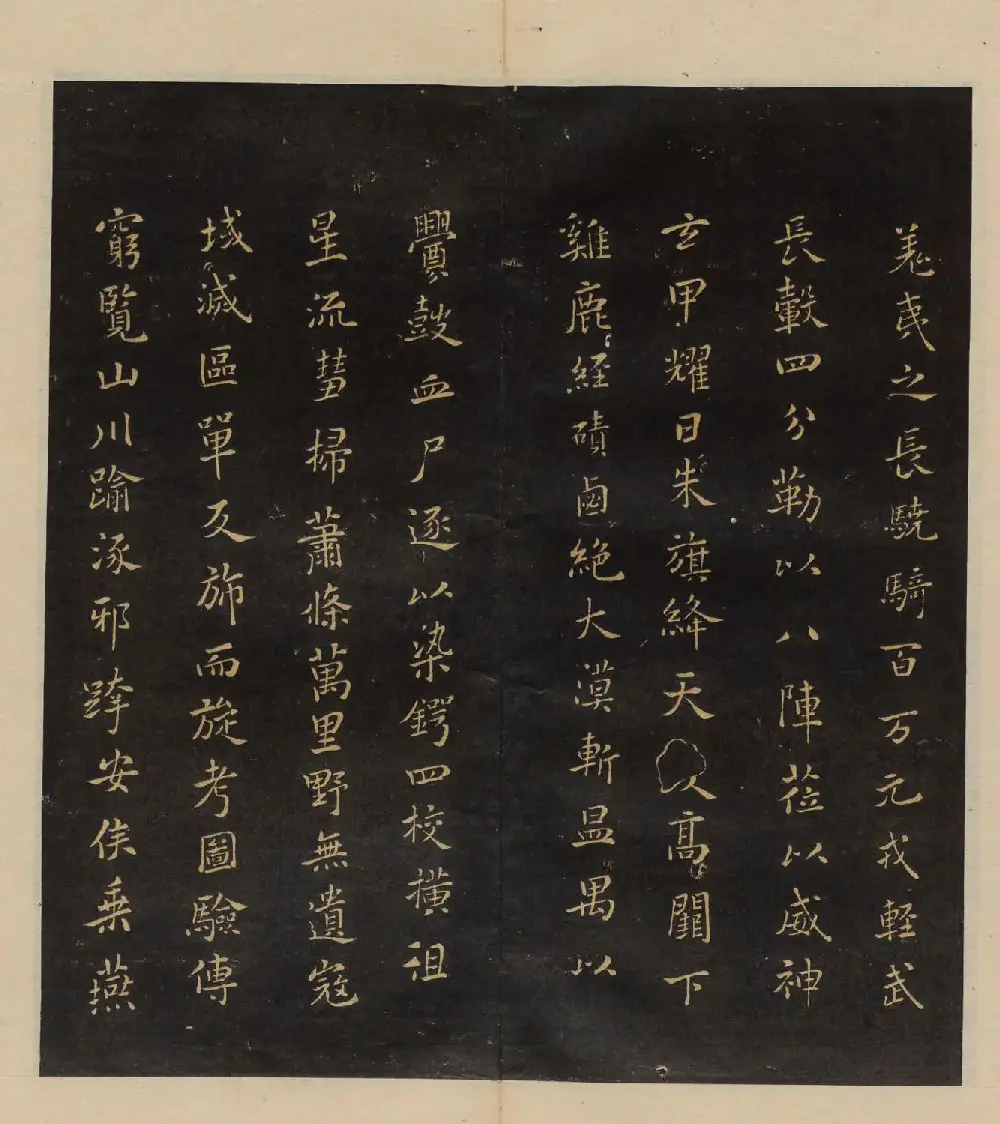 羌夷之長驍騎百万元戎軽武
長轂四分勒以八陣莅以威神
玄甲耀日朱旗絳天高闕下
雞鹿経磧鹵絶大漠斬昷禺以
釁鼓血尸逐以染鍔四校横徂
星流彗掃蕭條萬里野無遺寇
域滅區單反斾而旋考圖驗傳
窮覽山川踰涿邪跨安侯乗燕